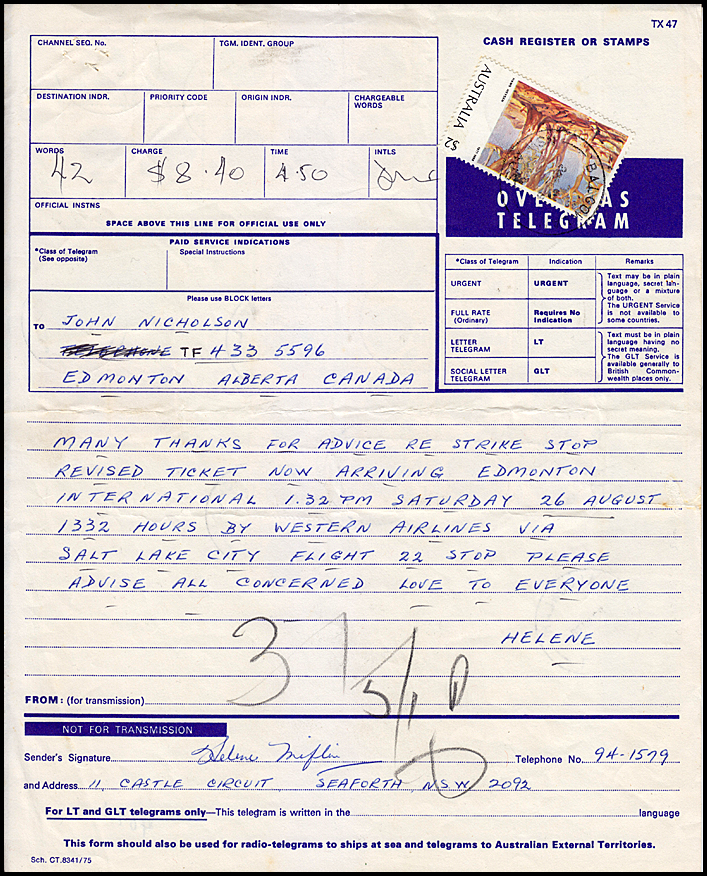 TX 47
CASH REGISTER OR STAMPS
CHANNEL SEQ. No.
TGM. IDENT. GROUP
DESTINATION INDR.
PRIORITY CODE
ORIGIN INDR.
CHARGEABLE WORDS
WORDS
42
CHARGE
$8.40
TIME
4.50
INTLS
AUSTRALIA
$2
OVERSEAS
TELEGRAM
OFFICIAL INSTNS
SPACE ABOVE THIS LINE FOR OFFICIAL USE ONLY
PAID SERVICE INDICATIONS
*Class of Telegram
(See opposite)
Special Instructions
Please use BLOCK letters
TO JOHN NICHOLSON
TELEPHONE TF 433 5596
EDMONTON ALBERTA CANADA
*Class of Telegram
Indication
Remarks
URGENT
URGENT
Text may be in plain language, secret lah-guage or a mixture of both.
The URGENT Service is not available to some countries.
FULL RATE
(Ordinary)
Requires No Indication
LETTER TELEGRAM
LT
Text must be in plain language having no secret meaning.
The GLT Service is available generally to British Common-wealth places only.
SOCIAL LETTER TELEGRAM
GLT
MANY THANKS FOR ADVICE RE STRIKE STOP
REVISED TICKET NOW ARRIVING EDMONTON
INTERNATIONAL 1.32 PM SATURDAY 26 AUGUST
1332 HOURS BY WESTERN AIRLINES VIA
SALT LAKE CITY FLIGHT 22 STOP PLEASE
ADVISE ALL CONCERNED LOVE TO EVERYONE
HELENE
FROM: (for transmission)
NOT FOR TRANSMISSION
Sender's Signature Helene Miflin
Telephone No. 94-1579
and Address 11, CASTLE CIRCUIT, SEAFORTH, NSW 2092
For LT and GLT telegrams only—This telegram is written in the language
This form should also be used for radio-telegrams to ships at sea and telegrams to Australian External Territories.
Sch. CT.8341/75